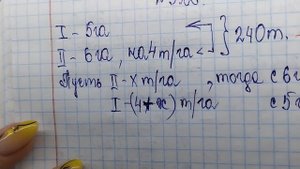 I - 5га } 240т.
II - 6га, на 4т/га <
Пусть II - x т/га, тогда с 6г
I - (4+x) т/га с 5г